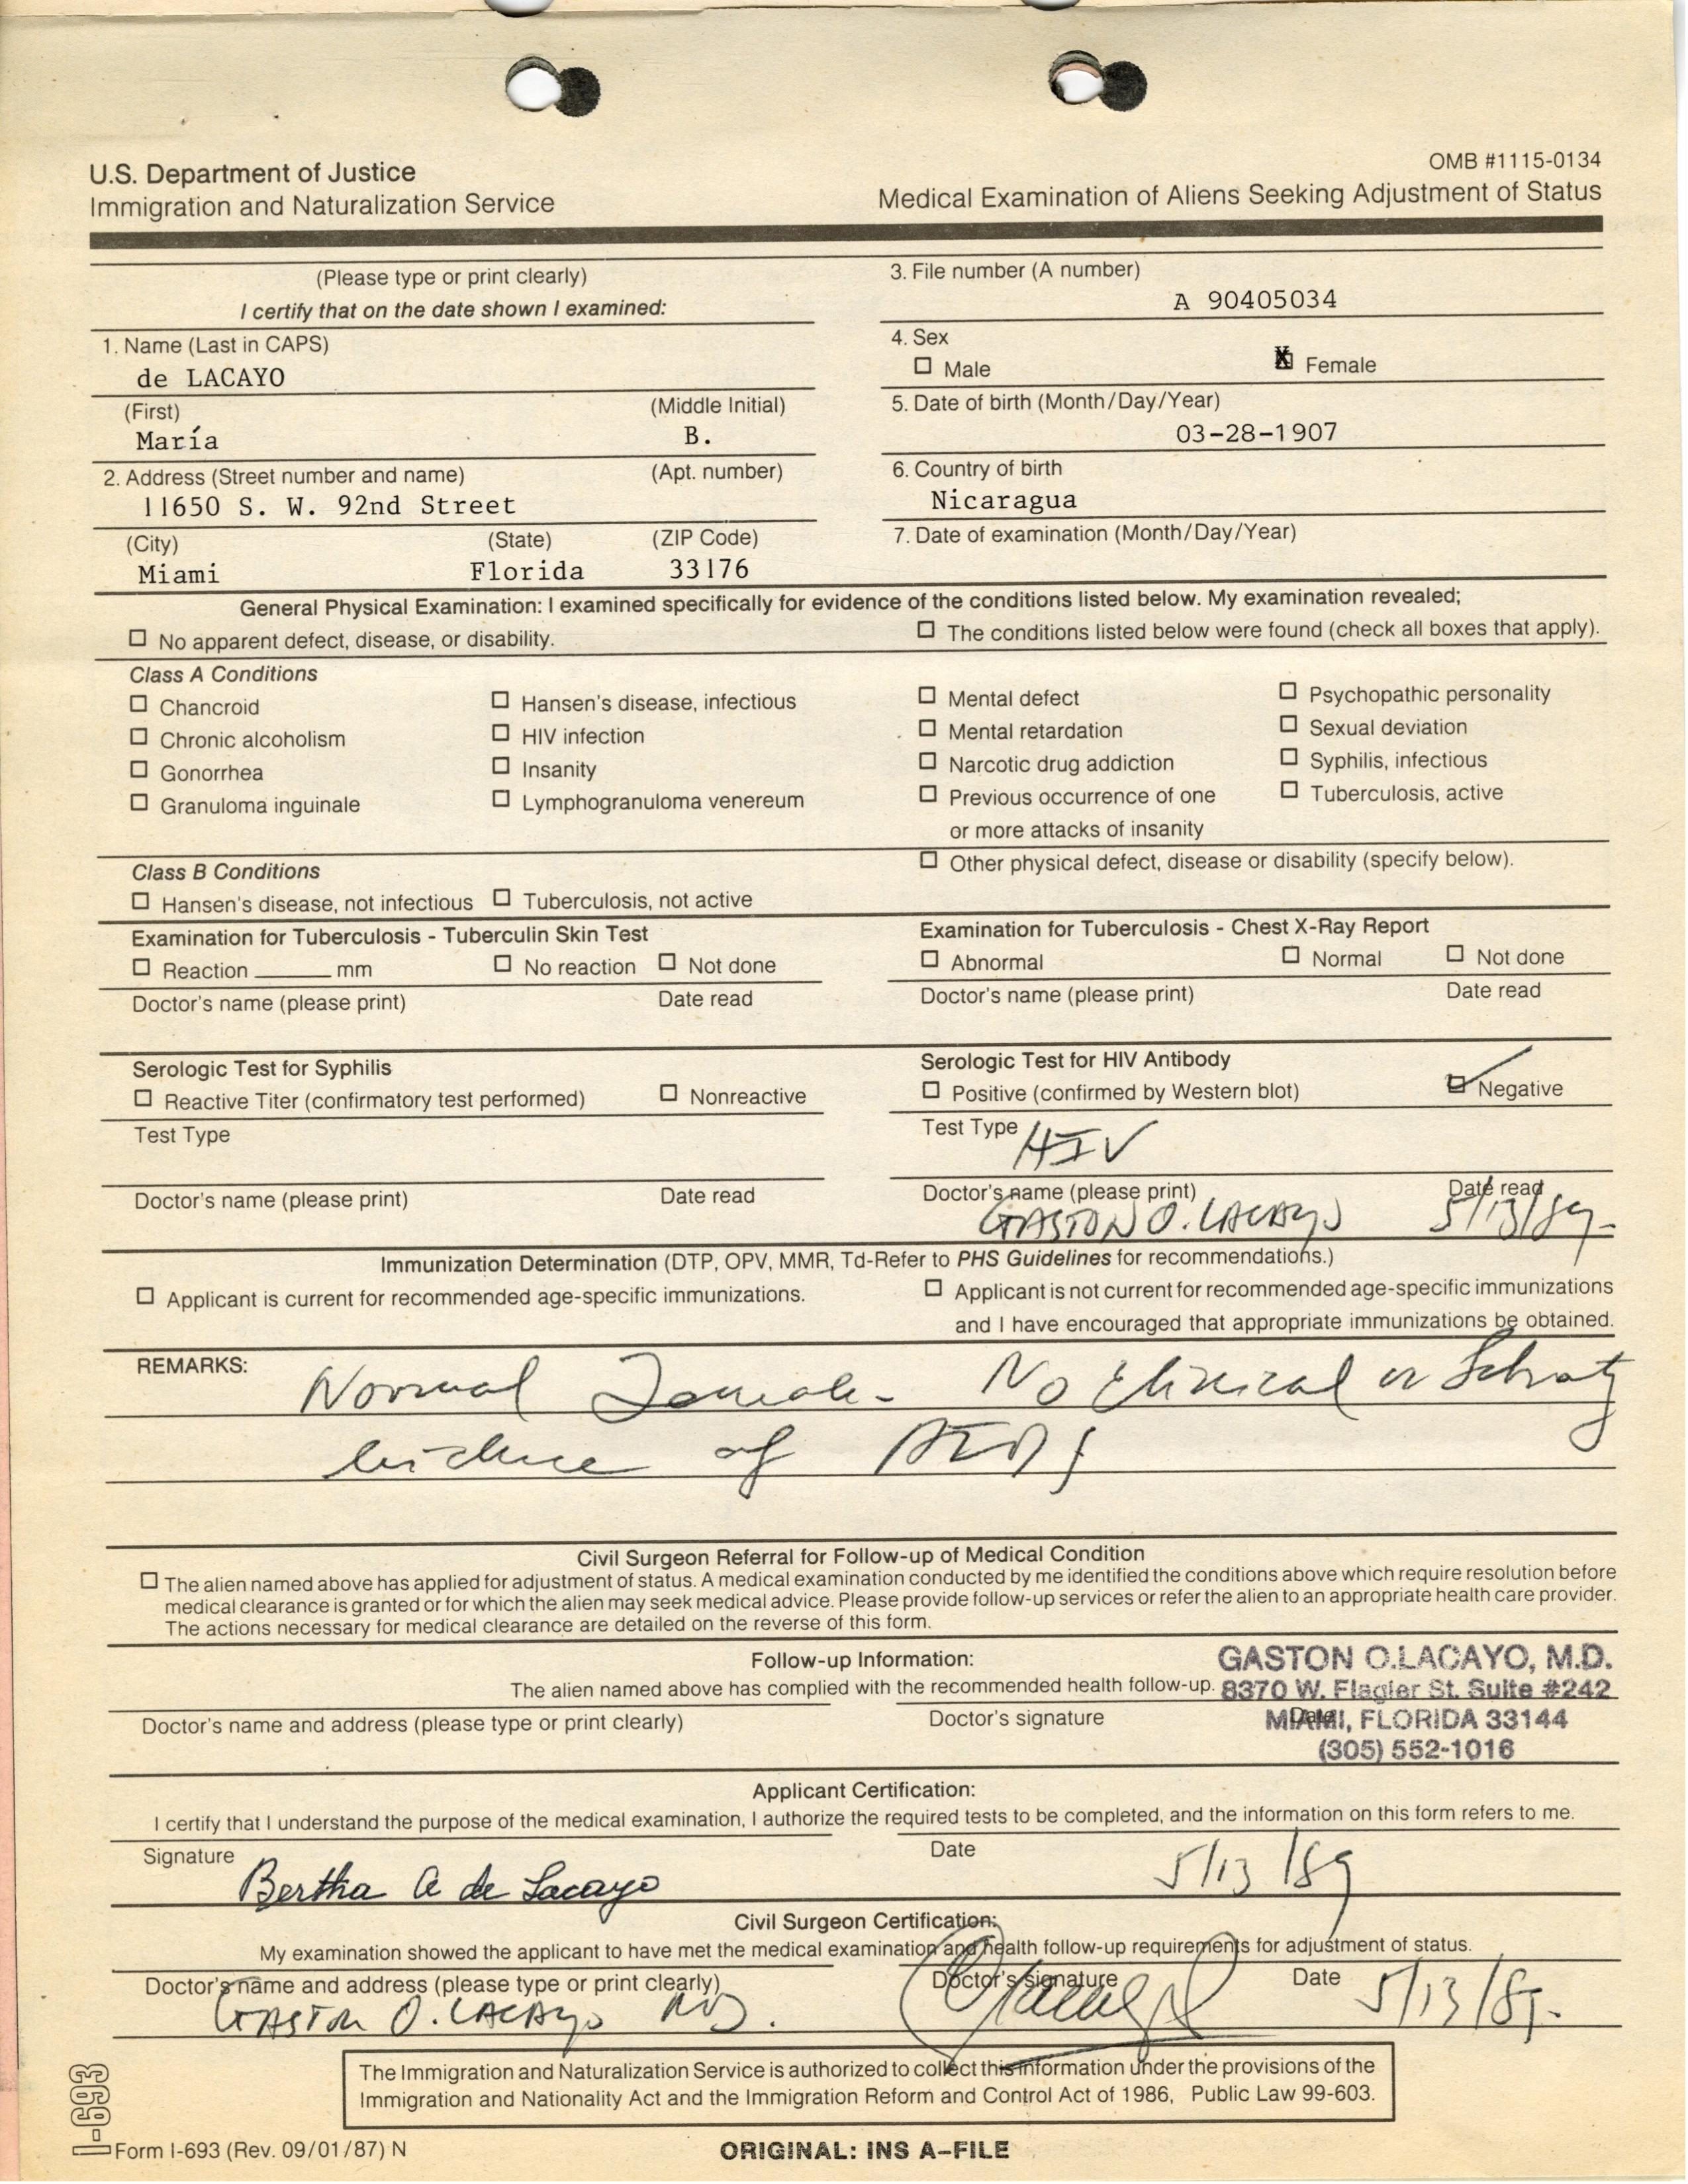 U.S. Department of Justice
Immigration and Naturalization Service
OMB #1115-0134
Medical Examination of Aliens Seeking Adjustment of Status
(Please type or print clearly)
I certify that on the date shown I examined:
3. File number (A number)
A 90405034
1. Name (Last in CAPS)
de LACAYO
4. Sex
☐ Male ☒ Female
(First) (Middle Initial)
María B.
5. Date of birth (Month/Day/Year)
03-28-1907
2. Address (Street number and name) (Apt. number)
11650 S. W. 92nd Street
6. Country of birth
Nicaragua
(City) (State) (ZIP Code)
Miami Florida 33176
7. Date of examination (Month/Day/Year)
General Physical Examination: I examined specifically for evidence of the conditions listed below. My examination revealed;
☐ No apparent defect, disease, or disability. ☐ The conditions listed below were found (check all boxes that apply).
Class A Conditions
☐ Chancroid ☐ Hansen's disease, infectious ☐ Mental defect ☐ Psychopathic personality
☐ Chronic alcoholism ☐ HIV infection ☐ Mental retardation ☐ Sexual deviation
☐ Gonorrhea ☐ Insanity ☐ Narcotic drug addiction ☐ Syphilis, infectious
☐ Granuloma inguinale ☐ Lymphogranuloma venereum ☐ Previous occurrence of one ☐ Tuberculosis, active
or more attacks of insanity
Class B Conditions ☐ Other physical defect, disease or disability (specify below).
☐ Hansen's disease, not infectious ☐ Tuberculosis, not active
Examination for Tuberculosis - Tuberculin Skin Test
☐ Reaction ______ mm ☐ No reaction ☐ Not done
Doctor's name (please print) Date read
Examination for Tuberculosis - Chest X-Ray Report
☐ Abnormal ☐ Normal ☐ Not done
Doctor's name (please print) Date read
Serologic Test for Syphilis
☐ Reactive Titer (confirmatory test performed) ☐ Nonreactive
Test Type
Doctor's name (please print) Date read
Serologic Test for HIV Antibody
☐ Positive (confirmed by Western blot) ☑ Negative
Test Type HIV
Doctor's name (please print) Date read
GASTON O. LACAYO 5/13/89-
Immunization Determination (DTP, OPV, MMR, Td-Refer to PHS Guidelines for recommendations.)
☐ Applicant is current for recommended age-specific immunizations. ☐ Applicant is not current for recommended age-specific immunizations
and I have encouraged that appropriate immunizations be obtained.
REMARKS: Normal Female - No Clinical or
evidence of AIDS
Civil Surgeon Referral for Follow-up of Medical Condition
☐ The alien named above has applied for adjustment of status. A medical examination conducted by me identified the conditions above which require resolution before
medical clearance is granted or for which the alien may seek medical advice. Please provide follow-up services or refer the alien to an appropriate health care provider.
The actions necessary for medical clearance are detailed on the reverse of this form.
Follow-up Information:
The alien named above has complied with the recommended health follow-up.
Doctor's name and address (please type or print clearly) Doctor's signature Date
GASTON O.LACAYO, M.D.
8370 W. Flagler St. Suite #242
MIAMI, FLORIDA 33144
(305) 552-1016
Applicant Certification:
I certify that I understand the purpose of the medical examination, I authorize the required tests to be completed, and the information on this form refers to me.
Signature Date
Bertha A de Lacayo 5/13/89
Civil Surgeon Certification:
My examination showed the applicant to have met the medical examination and health follow-up requirements for adjustment of status.
Doctor's name and address (please type or print clearly) Doctor's signature Date
GASTON O. LACAYO MD. 5/13/89.
The Immigration and Naturalization Service is authorized to collect this information under the provisions of the
Immigration and Nationality Act and the Immigration Reform and Control Act of 1986, Public Law 99-603.
I-693
Form I-693 (Rev. 09/01/87) N
ORIGINAL: INS A-FILE